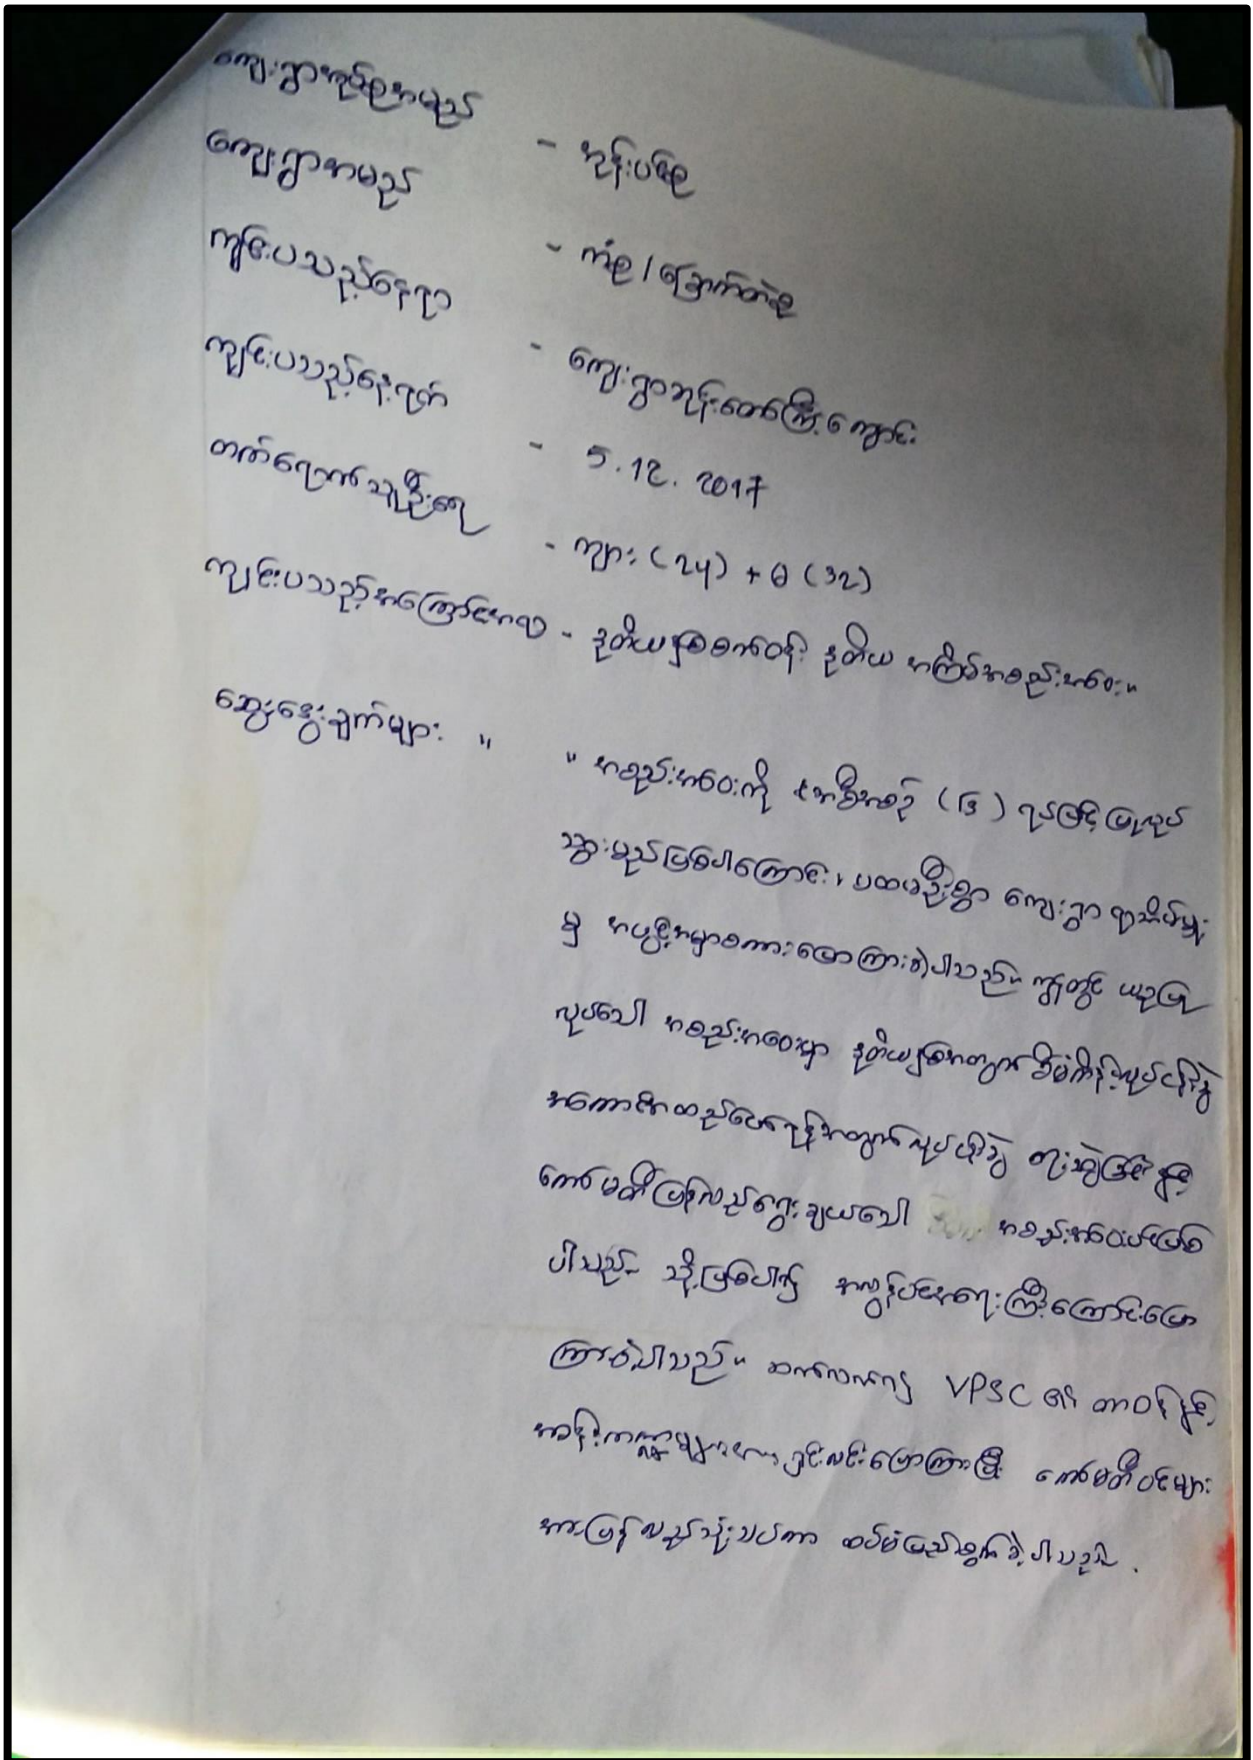 ကျေးရွာအုပ်စုအမည် - အုန်းပင်စု
ကျေးရွာအမည် - ကံစု / ခြောက်တဲစု
ကျင်းပသည့်နေရာ - ကျေးရွာဘုန်းတော်ကြီးကျောင်း
ကျင်းပသည့်နေ့ရက် - 5.12.2017
တက်ရောက်သူဦးရေ - ကျား (24) + မ (32)
ကျင်းပသည့်အကြောင်းအရာ - ဒုတိယနှစ်စက်ဝန်း ဒုတိယ အကြိမ်အစည်းအဝေး။
ဆွေးနွေးချက်များ ။ ။ အစည်းအဝေးကို အစီအစဉ် (၆) ရပ်ဖြင့် ပြုလုပ်
သွားမည်ဖြစ်ပါကြောင်း၊ ပထမဦးစွာ ကျေးရွာ ရာအိမ်မှူး
မှ အဖွင့်အမှာစကားပြောကြားခဲ့ပါသည်။ ယခုပြု
လုပ်သော အစည်းအဝေးမှာ ဒုတိယနှစ်အတွက် စီမံကိန်းလုပ်ငန်းခွဲ
အကောင်အထည်ဖော်ရန်အတွက် လုပ်ငန်းခွဲ ရေးဆွဲခြင်းနှင့်
ကော်မတီပြန်လည်ရွေးချယ်သော အစည်းအဝေးပင်ဖြစ်
ပါသည်။ သို့ဖြစ်ပါ၍ အလွန်ပင်အရေးကြီးကြောင်းပြော
ကြားခဲ့ပါသည်။ ဆက်လက်၍ VPSC ၏ တာဝန်နှင့်
ကဏ္ဍများအားရှင်းလင်းပြောကြားပြီး ကော်မတီဝင်များ
အားပြန်လည်သုံးသပ်ကာ ထပ်မံဖြည့်စွက်ခဲ့ပါသည်။